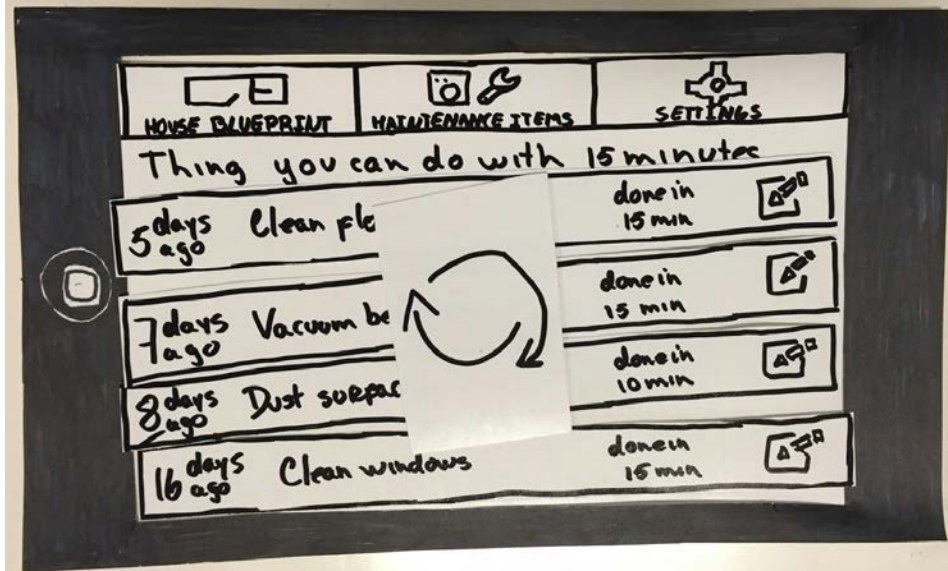 HOUSE BLUEPRINT
MAINTENANCE ITEMS
SETTINGS
Thing you can do with 15 minutes
5 days ago Clean flo done in 15 min
7 days ago Vacuum be done in 15 min
8 days ago Dust surfac done in 10 min
16 days ago Clean windows done in 15 min